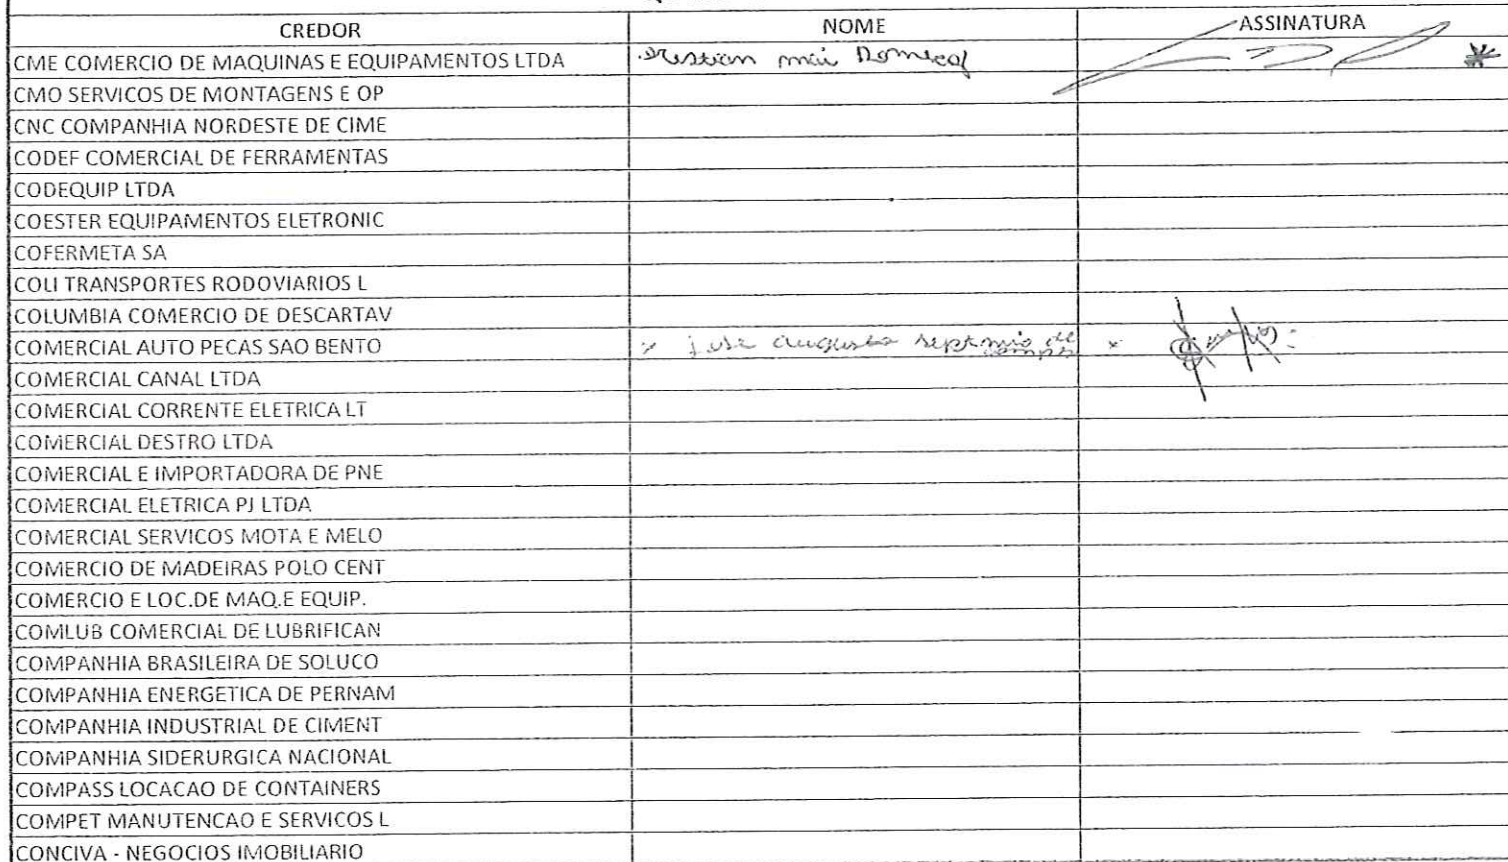 CREDOR NOME ASSINATURA
CME COMERCIO DE MAQUINAS E EQUIPAMENTOS LTDA
CMO SERVICOS DE MONTAGENS E OP
CNC COMPANHIA NORDESTE DE CIME
CODEF COMERCIAL DE FERRAMENTAS
CODEQUIP LTDA
COESTER EQUIPAMENTOS ELETRONIC
COFERMETA SA
COLI TRANSPORTES RODOVIARIOS L
COLUMBIA COMERCIO DE DESCARTAV
COMERCIAL AUTO PECAS SAO BENTO x jose augusto de x
COMERCIAL CANAL LTDA
COMERCIAL CORRENTE ELETRICA LT
COMERCIAL DESTRO LTDA
COMERCIAL E IMPORTADORA DE PNE
COMERCIAL ELETRICA PJ LTDA
COMERCIAL SERVICOS MOTA E MELO
COMERCIO DE MADEIRAS POLO CENT
COMERCIO E LOC.DE MAQ.E EQUIP.
COMLUB COMERCIAL DE LUBRIFICAN
COMPANHIA BRASILEIRA DE SOLUCO
COMPANHIA ENERGETICA DE PERNAM
COMPANHIA INDUSTRIAL DE CIMENT
COMPANHIA SIDERURGICA NACIONAL
COMPASS LOCACAO DE CONTAINERS
COMPET MANUTENCAO E SERVICOS L
CONCIVA - NEGOCIOS IMOBILIARIO